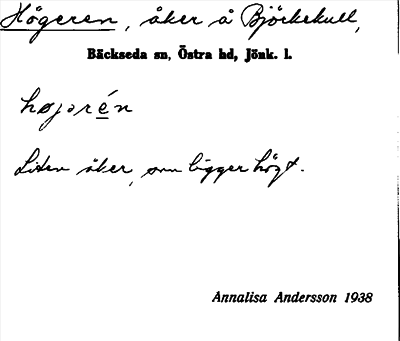 Högeren, åker å Björkekull,
Bäckseda sn, Östra hd, Jönk. l.
højɘrén
Liten åker, som ligger högt.
Annalisa Andersson 1938